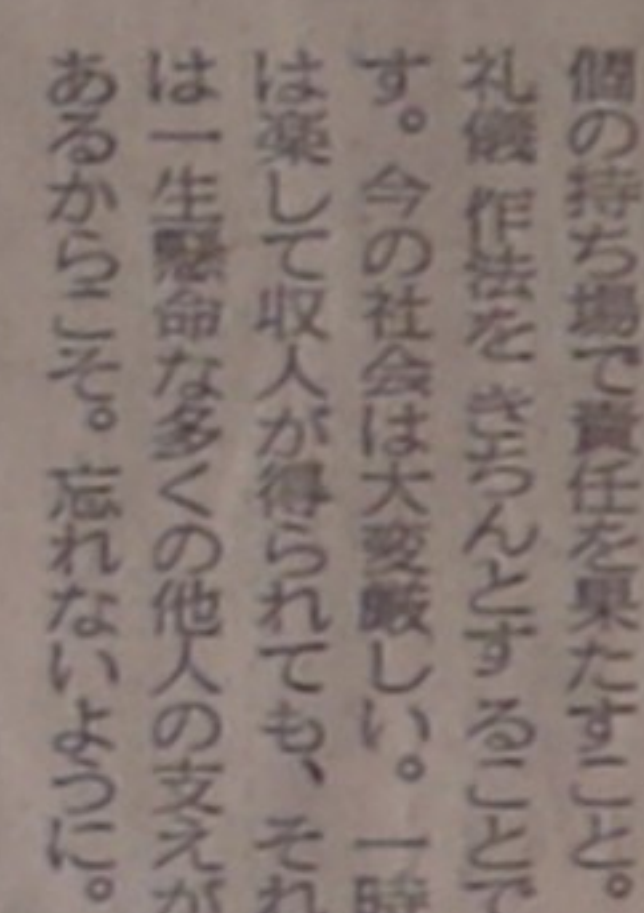 個の持ち場で責任を果たすこと。
礼儀作法をきちんとすることで
す。今の社会は大変厳しい。一時
は楽して収入が得られても、それ
は一生懸命な多くの他人の支えが
あるからこそ。忘れないように。